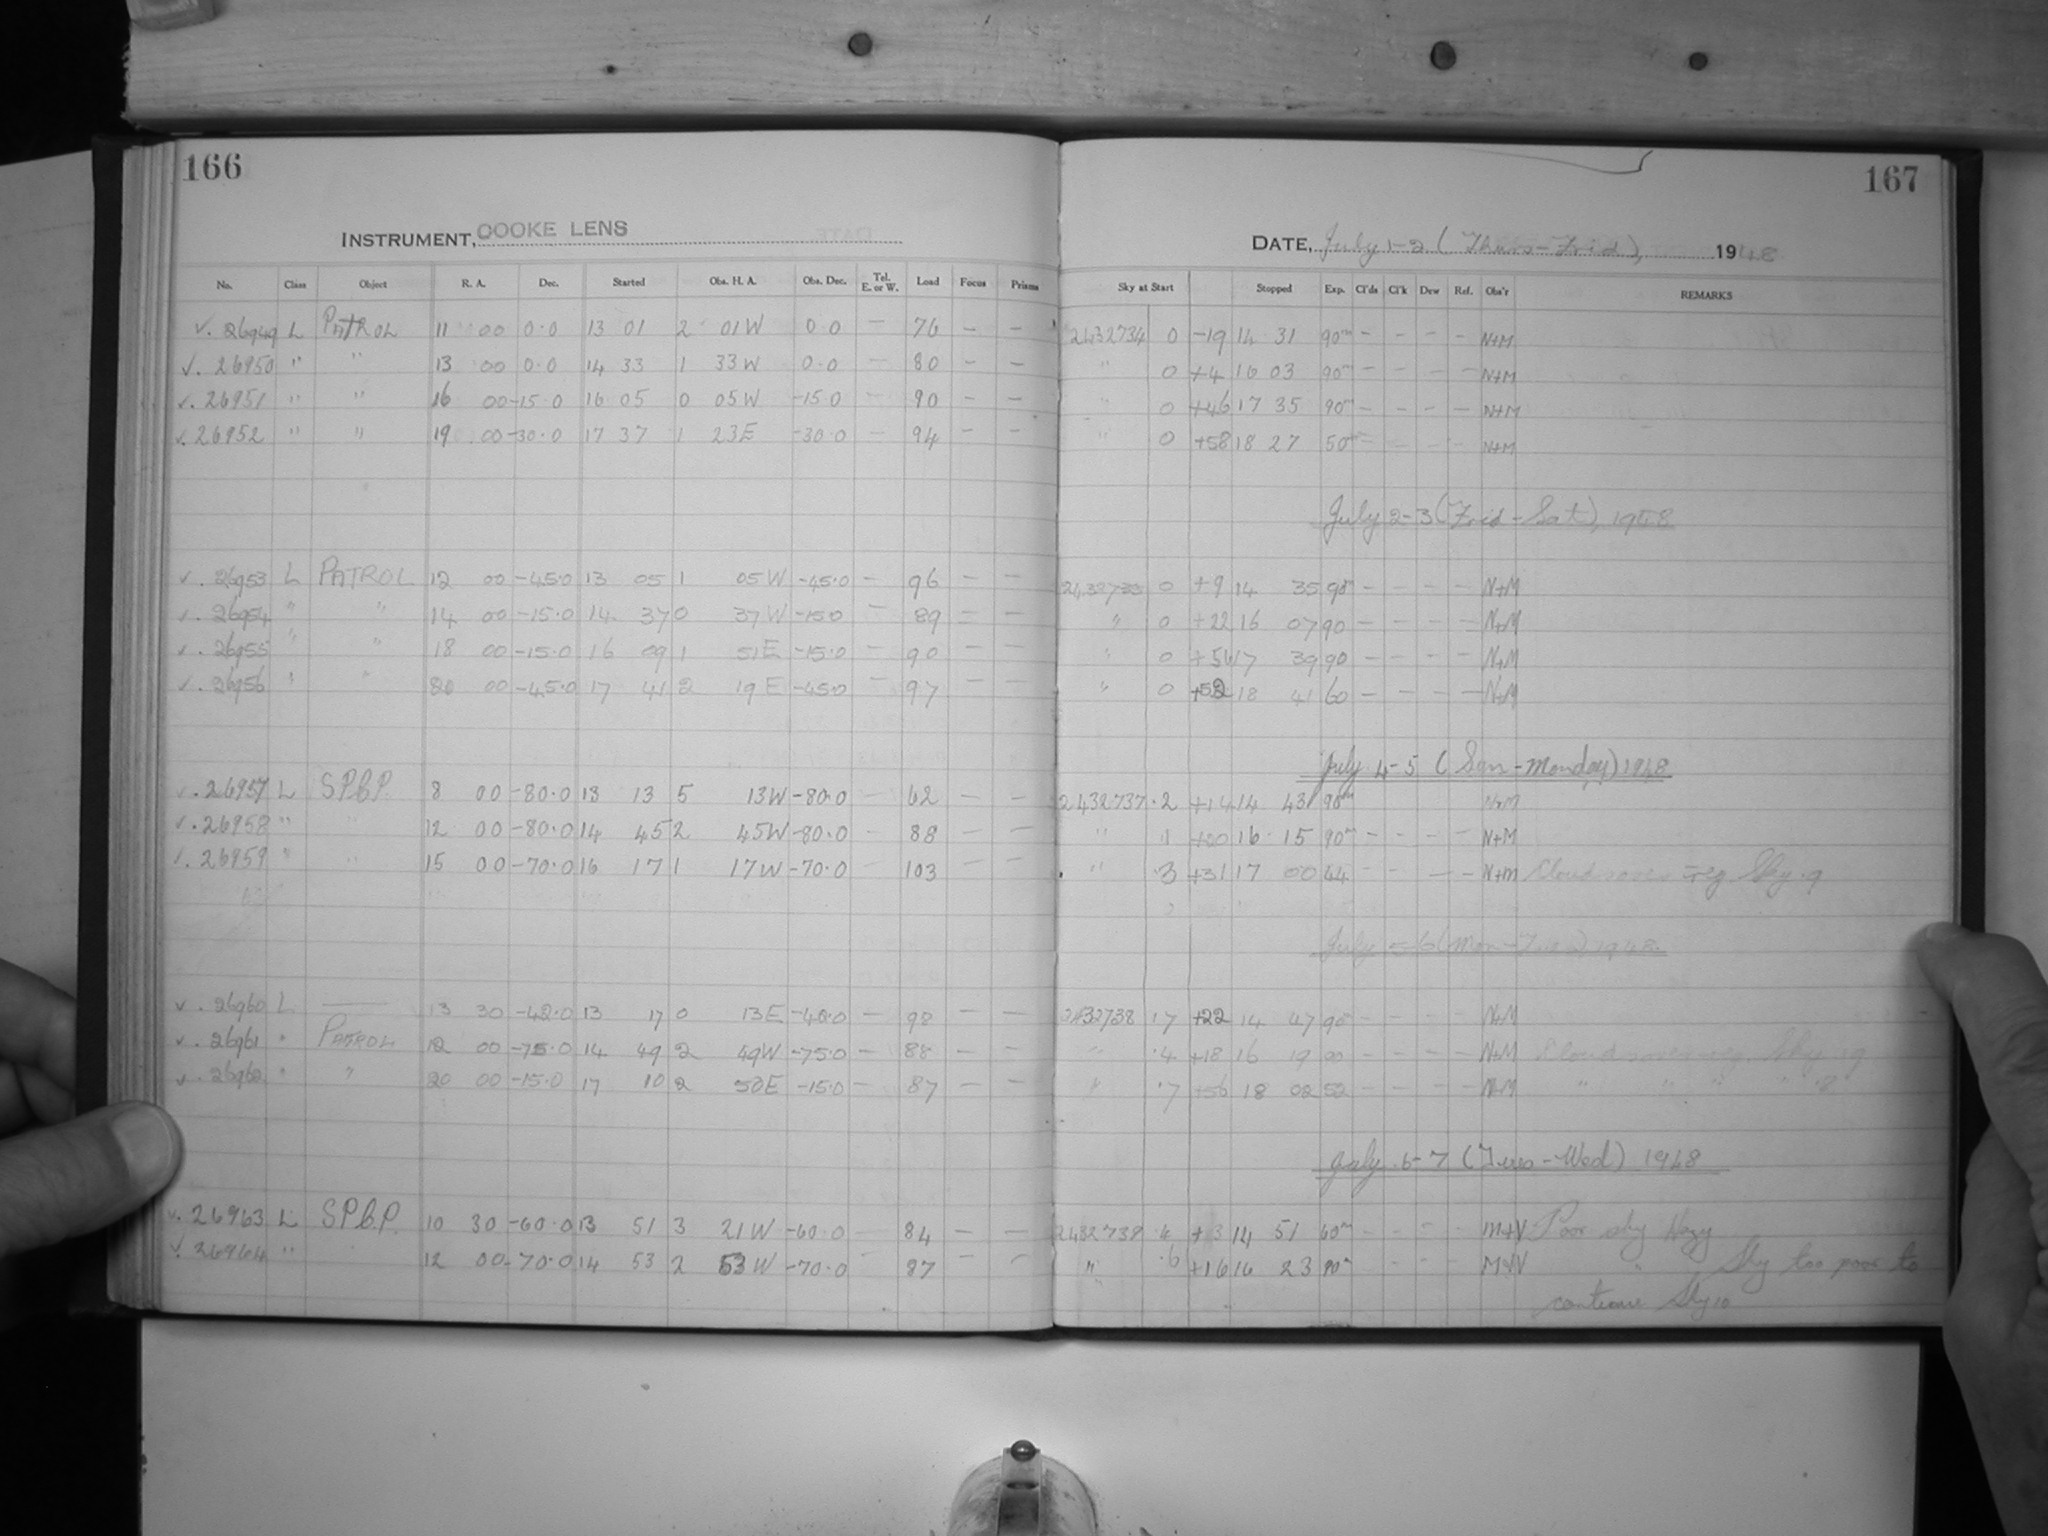 166
INSTRUMENT, COOKE LENS
No. Class Object R. A. Dec. Started Obs. H. A. Obs. Dec. Tel. E. or W. Load Focus Prisms
v. 26949 L PATROL 11 00 0.0 13 01 2 01W 0.0 — 76 — —
v. 26950 " " 13 00 0.0 14 33 1 33W 0.0 — 80 — —
v. 26951 " " 16 00 -15.0 16 05 0 05W -15.0 — 90 — —
v. 26952 " " 19 00 -30.0 17 37 1 23E -30.0 — 94 — —
v. 26953 L PATROL 12 00 -45.0 13 05 1 05W -45.0 — 96 — —
v. 26954 " " 14 00 -15.0 14 37 0 37W -15.0 — 89 — —
v. 26955 " " 18 00 -15.0 16 09 1 51E -15.0 — 90 — —
v. 26956 " " 20 00 -45.0 17 41 2 19E -45.0 — 97 — —
v. 26957 L S.P.b.P. 8 00 -80.0 13 13 5 13W -80.0 — 62 — —
v. 26958 " " 12 00 -80.0 14 45 2 45W -80.0 — 88 — —
v. 26959 " " 15 00 -70.0 16 17 1 17W -70.0 — 103 — —
v. 26960 L — 13 30 -42.0 13 17 0 13E — 98 — —
v. 26961 " PATROL 12 00 -75.0 14 49 2 49W -75.0 — 88 — —
v. 26962 " " 20 00 -15.0 17 10 2 50E -15.0 — 87 — —
v. 26963 L S.P.b.P. 10 30 -60.0 13 51 3 21W -60.0 — 84 — —
v. 26964 " 12 00 -70.0 14 53 2 53W -70.0 — 87 — —
167
DATE, July 1-2 (Thurs-Frid), 1948
Sky at Start Stopped Exp. Cl'ds Cl'k Dew Ref. Obs'r REMARKS
2432734 0 -19 14 31 90m — — — — N+M
" 0 +4 16 03 90m — — — — N+M
" 0 +46 17 35 90m — — — — N+M
" 0 +58 18 27 50m — — — — N+M
July 2-3 (Frid-Sat), 1948
2432735 0 +9 14 35 90m — — — — N+M
" 0 +22 16 07 90 — — — — N+M
" 0 17 39 90 — — — — N+M
" 0 +52 18 41 60 — — — — N+M
July 4-5 (Sun-Monday) 1948
2432737 .2 +14 14 43 90m N+M
" 16 15 90m — — — — N+M
" .3 +31 17 00 44 — — — — N+M Cloud over reg Sky .9
July 5-6 (Mon-Tues) 1948.
2432738 .7 +22 14 47 90 — — — — N+M
" .4 +18 16 19 90 — — — — N+M Cloud over reg. Sky .9
" .7 +56 18 02 52 — — — — N+M " " " "
July 6-7 (Tues-Wed) 1948
2432739 14 51 60m — — — — M+V Poor sky Hazy
" .6 +16 16 23 90m — — — — M+V " Sky too poor to
continue Sky 10